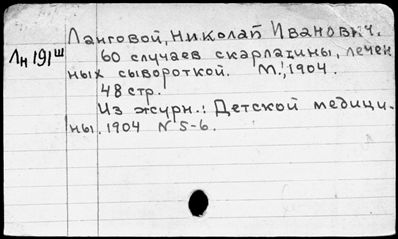 Лн 191ш
Ланговой, Николай Иванович.
60 случаев скарлатины, лечен
ных сывороткой. М., 1904.
48 стр.
Из журн.: Детской медици-
ны. 1904 N 5-6.